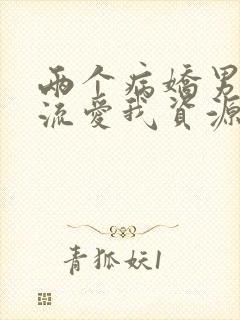 两个病嬌男
流爱我資源
青狐妖1